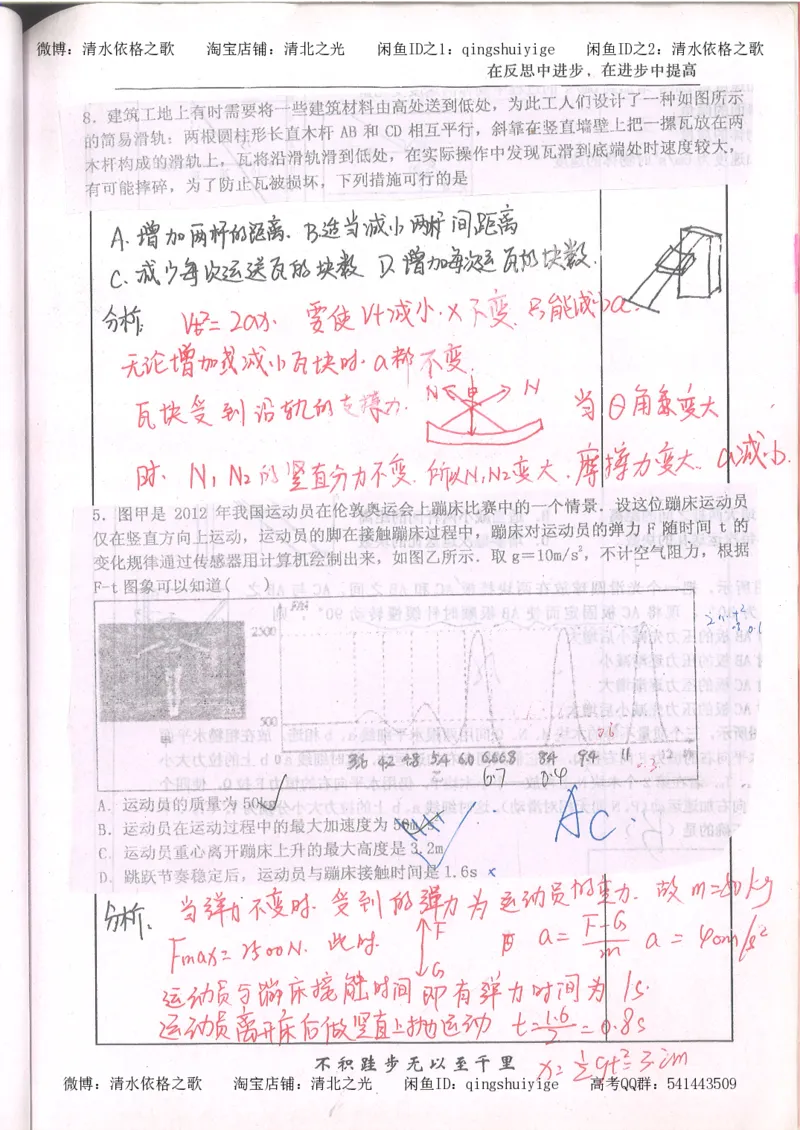 微博：清水依格之歌 淘宝店铺：清北之光 闲鱼ID之1：qingshuiyige 闲鱼ID之2：清水依格之歌
在反思中进步，在进步中提高
8．建筑工地上有时需要将一些建筑材料由高处送到低处，为此工人们设计了一种如图所示
的简易滑轨：两根圆柱形长直木杆 AB 和 CD 相互平行，斜靠在竖直墙壁上把一摞瓦放在两
木杆构成的滑轨上，瓦将沿滑轨滑到低处，在实际操作中发现瓦滑到底端处时速度较大，
有可能摔碎，为了防止瓦被损坏，下列措施可行的是
A. 增加两杆的距离. B.适当减小两杆间距离
C. 减少每次运送瓦的块数 D.增加每次运瓦的块数.
分析: Vt²=2ax. 要使Vt减小. x不变. 只能减小a.
无论增加或减小瓦块时. a都不变.
瓦块受到沿轨的支撑力.
N N
当θ角变大
时. N₁ N₂的竖直分力不变. 所以N₁N₂变大. 摩擦力变大. a减小.
5．图甲是 2012 年我国运动员在伦敦奥运会上蹦床比赛中的一个情景．设这位蹦床运动员
仅在竖直方向上运动，运动员的脚在接触蹦床过程中，蹦床对运动员的弹力 F 随时间 t 的
变化规律通过传感器用计算机绘制出来，如图乙所示．取 g＝10m/s²，不计空气阻力，根据
F-t 图象可以知道( )
F/N
2500
500
3.6 4.2 4.8 5.4 6.0 6.6 6.8 8.4 9.4 11 12
6.7 0.4
A．运动员的质量为 50kg
B．运动员在运动过程中的最大加速度为 50m/s²
C．运动员重心离开蹦床上升的最大高度是 3.2m
D．跳跃节奏稳定后，运动员与蹦床接触时间是 1.6s x
AC.
分析: 当弹力不变时. 受到的弹力为运动员的重力. 故m=50kg
Fmax=2500N. 此时. F G 由 a=F-G/m a=40m/s²
运动员与蹦床接触时间即有弹力时间为1s.
运动员离开床后做竖直上抛运动 t=1.6/2=0.8s
x=½gt²=3.2m
不积跬步无以至千里
微博：清水依格之歌 淘宝店铺：清北之光 闲鱼ID：qingshuiyige 高考QQ群：541443509